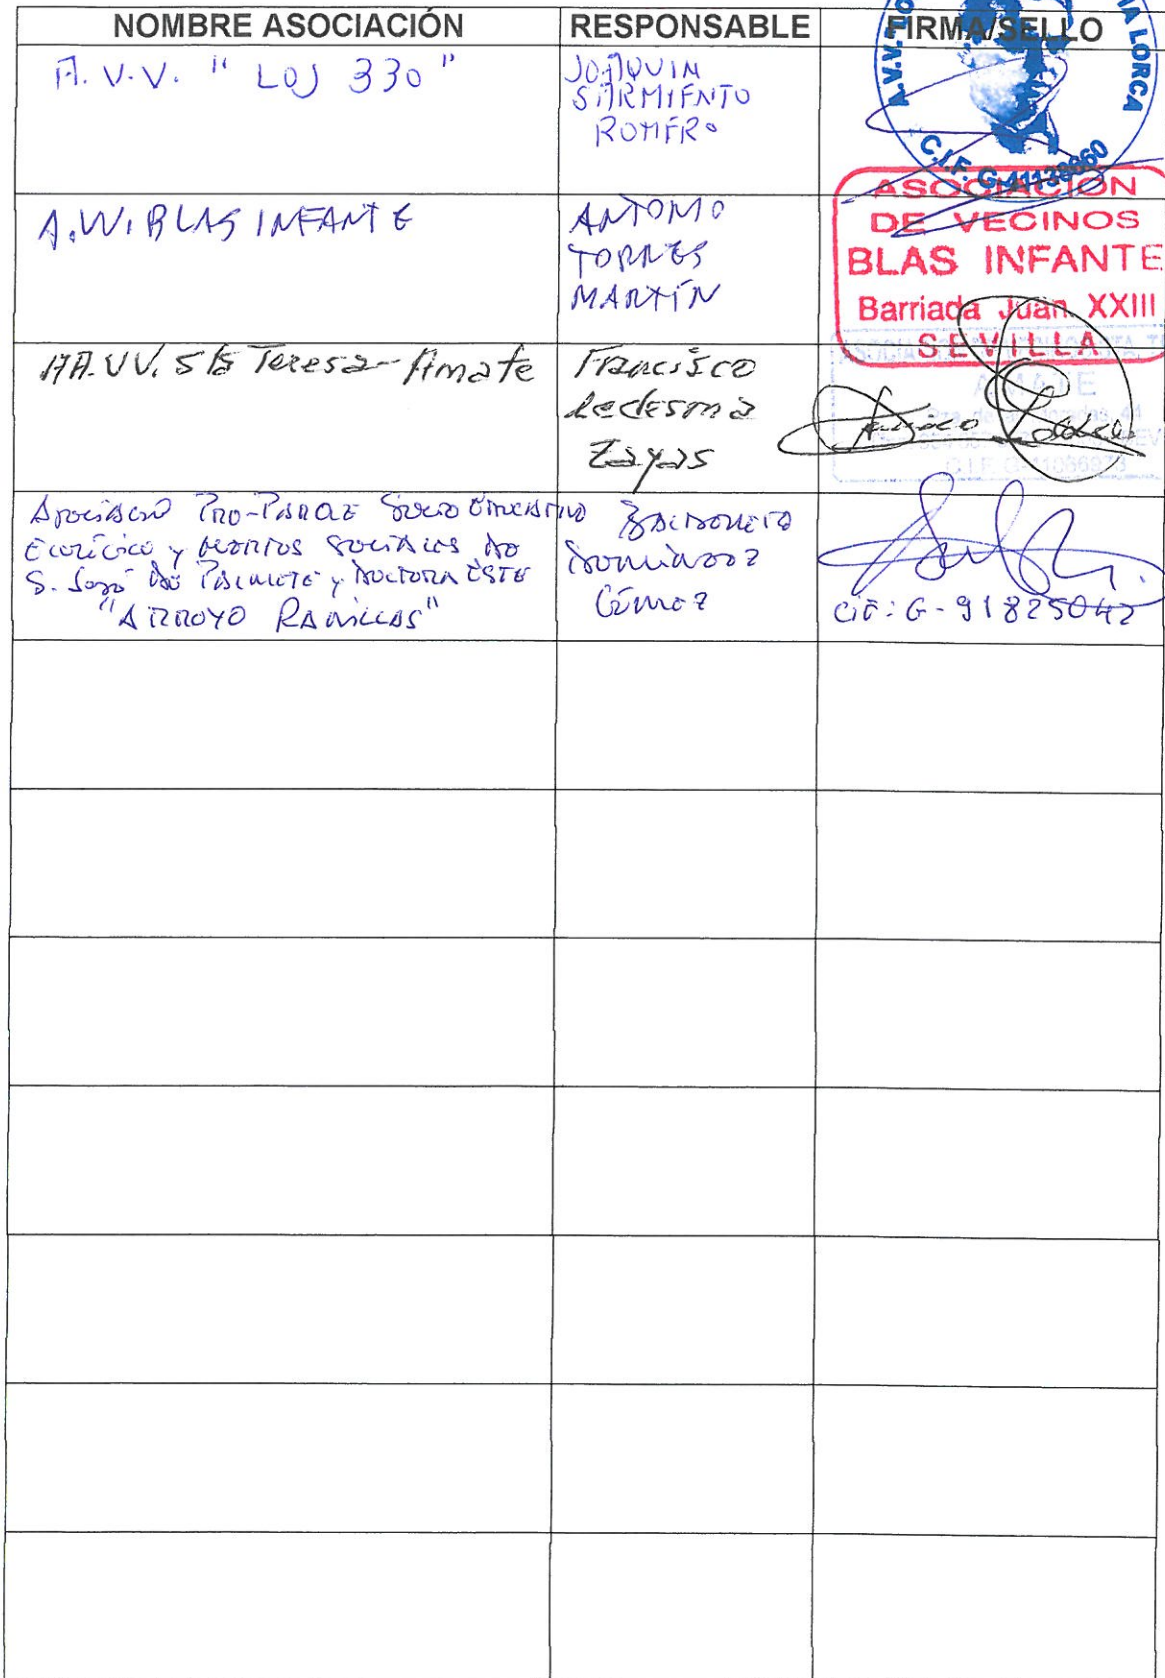 NOMBRE ASOCIACIÓN RESPONSABLE FIRMA/SELLO
A.V.V. "LOS 330" JOAQUIN
SARMIENTO
ROMERO
A.V.V. "LO
IA LORCA
C.I.F. G-41138660
A.VV. BLAS INFANTE ANTONIO
TORRES
MARTÍN
ASOCIACIÓN
DE VECINOS
BLAS INFANTE
Barriada Juan XXIII
SEVILLA
AA.VV. Sta Teresa-Amate Francisco
Ledesma
Zayas
AMATE
C.I.F. G-41066973
Asociación Pro-Parque Socio Educativo
Ecológico y Huertos Sociales de
S. José de Palmete y Doctora Este
"ARROYO RANILLAS"
Baldomero
Domínguez
Gómez
CIF: G-91825042